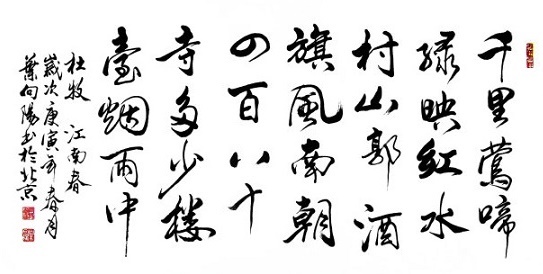 千里莺啼
绿映红水
村山郭酒
旗風南朝
四百八十
寺多少楼
臺烟雨中
杜牧 江南春
歲次庚寅年春月
葉向陽书於北京